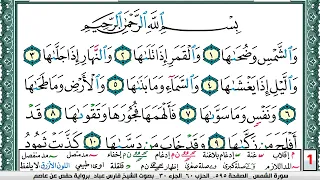 بِسْمِ اللَّهِ الرَّحْمَٰنِ الرَّحِيمِ
وَالشَّمْسِ وَضُحَاهَا ١ وَالْقَمَرِ إِذَا تَلَاهَا ٢ وَالنَّهَارِ إِذَا جَلَّاهَا ٣
وَاللَّيْلِ إِذَا يَغْشَاهَا ٤ وَالسَّمَاءِ وَمَا بَنَاهَا ٥ وَالْأَرْضِ وَمَا طَحَاهَا
٦ وَنَفْسٍ وَمَا سَوَّاهَا ٧ فَأَلْهَمَهَا فُجُورَهَا وَتَقْوَاهَا ٨ قَدْ
أَفْلَحَ مَن زَكَّاهَا ٩ وَقَدْ خَابَ مَن دَسَّاهَا ١٠ كَذَّبَتْ ثَمُودُ
1
سورة الشمس الصفحة ٥٩٥ الحزب ٦٠ الجزء ٣٠ بصوت الشيخ فارس عباد برواية حفص عن عاصم